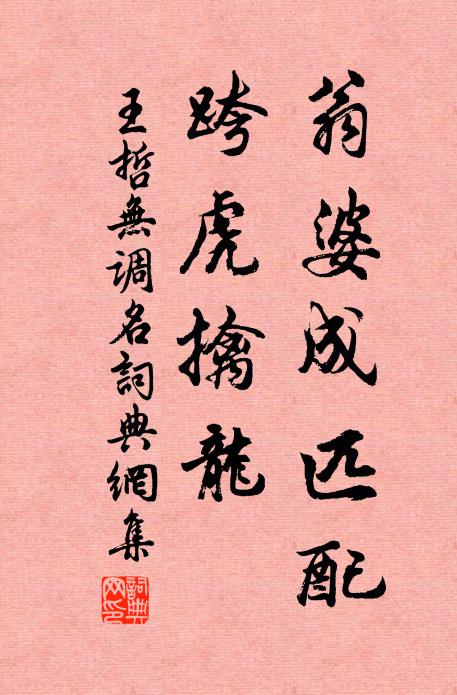 翁婆成匹配
跨虎擒龍
王哲無调名詞典網集
詞典网印